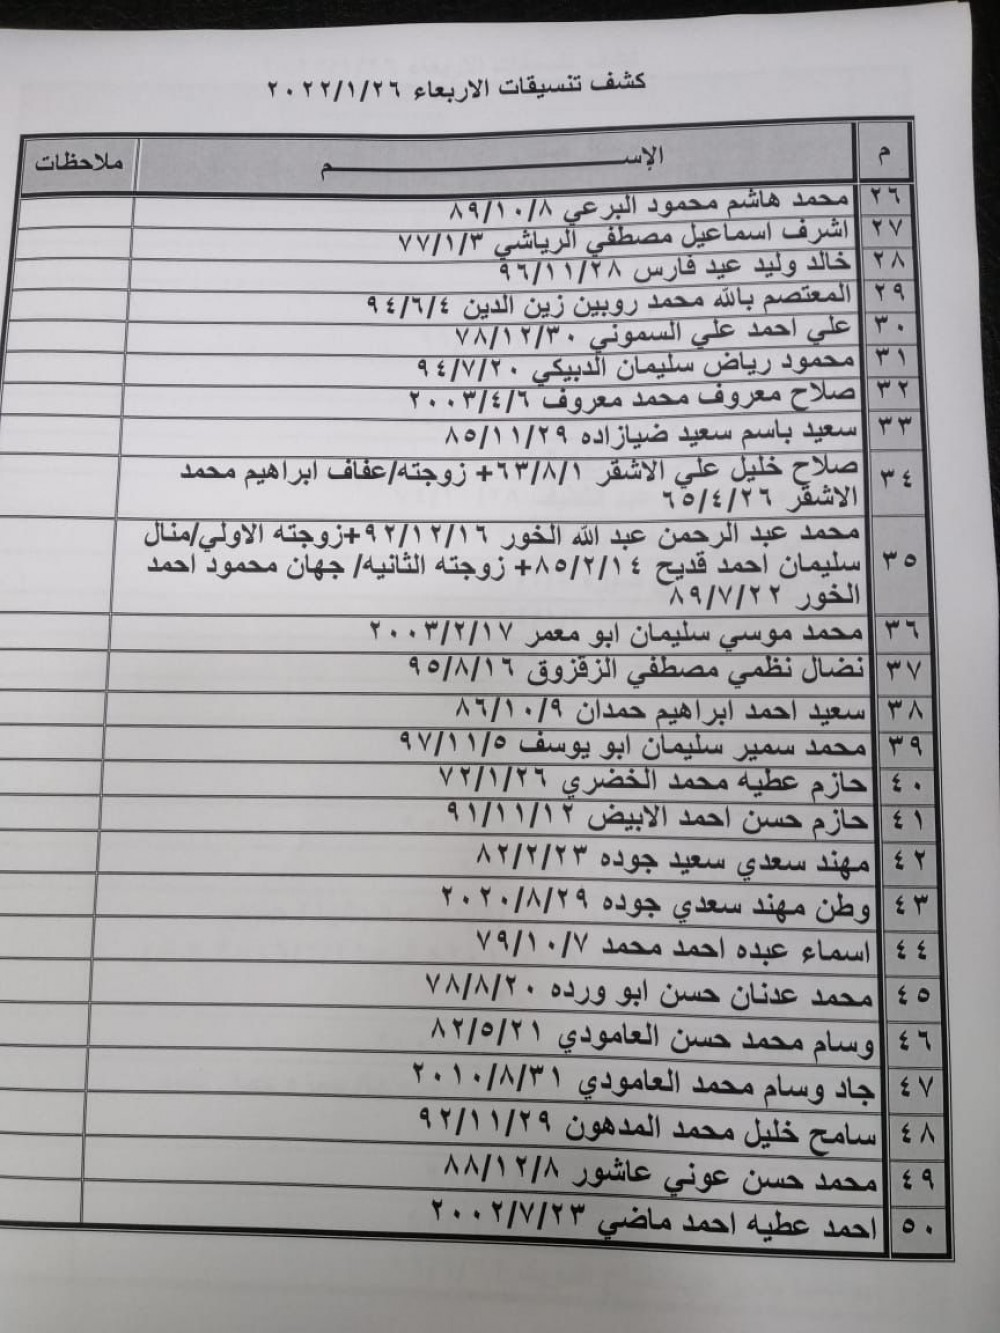 كشف تنسيقات الاربعاء ٢٠٢٢/١/٢٦
م الإســـــــــــــــم ملاحظات
٢٦ محمد هاشم محمود البرعي ٨٩/١٠/٨
٢٧ اشرف اسماعيل مصطفي الرياشي ٧٧/١/٣
٢٨ خالد وليد عيد فارس ٩٦/١١/٢٨
٢٩ المعتصم بالله محمد روبين زين الدين ٩٤/٦/٤
٣٠ علي احمد علي السموني ٧٨/١٢/٣٠
٣١ محمود رياض سليمان الدبيكي ٩٤/٧/٢٠
٣٢ صلاح معروف محمد معروف ٢٠٠٣/٤/٦
٣٣ سعيد باسم سعيد ضيازاده ٨٥/١١/٢٩
٣٤ صلاح خليل علي الاشقر ٦٣/٨/١+ زوجته/عفاف ابراهيم محمد
الاشقر ٦٥/٤/٢٦
محمد عبد الرحمن عبد الله الخور ٩٢/١٢/١٦+زوجته الاولي/منال
٣٥ سليمان احمد قديح ٨٥/٢/١٤+ زوجته الثانيه/ جهان محمود احمد
الخور ٨٩/٧/٢٢
٣٦ محمد موسي سليمان ابو معمر ٢٠٠٣/٢/١٧
٣٧ نضال نظمي مصطفي الزقزوق ٩٥/٨/١٦
٣٨ سعيد احمد ابراهيم حمدان ٨٦/١٠/٩
٣٩ محمد سمير سليمان ابو يوسف ٩٧/١١/٥
٤٠ حازم عطيه محمد الخضري ٧٢/١/٢٦
٤١ حازم حسن احمد الابيض ٩١/١١/١٢
٤٢ مهند سعدي سعيد جوده ٨٢/٢/٢٣
٤٣ وطن مهند سعدي جوده ٢٠٢٠/٨/٢٩
٤٤ اسماء عبده احمد محمد ٧٩/١٠/٧
٤٥ محمد عدنان حسن ابو ورده ٧٨/٨/٢٠
٤٦ وسام محمد حسن العامودي ٨٢/٥/٢١
٤٧ جاد وسام محمد العامودي ٢٠١٠/٨/٣١
٤٨ سامح خليل محمد المدهون ٩٢/١١/٢٩
٤٩ محمد حسن عوني عاشور ٨٨/١٢/٨
٥٠ احمد عطيه احمد ماضي ٢٠٠٢/٧/٢٣